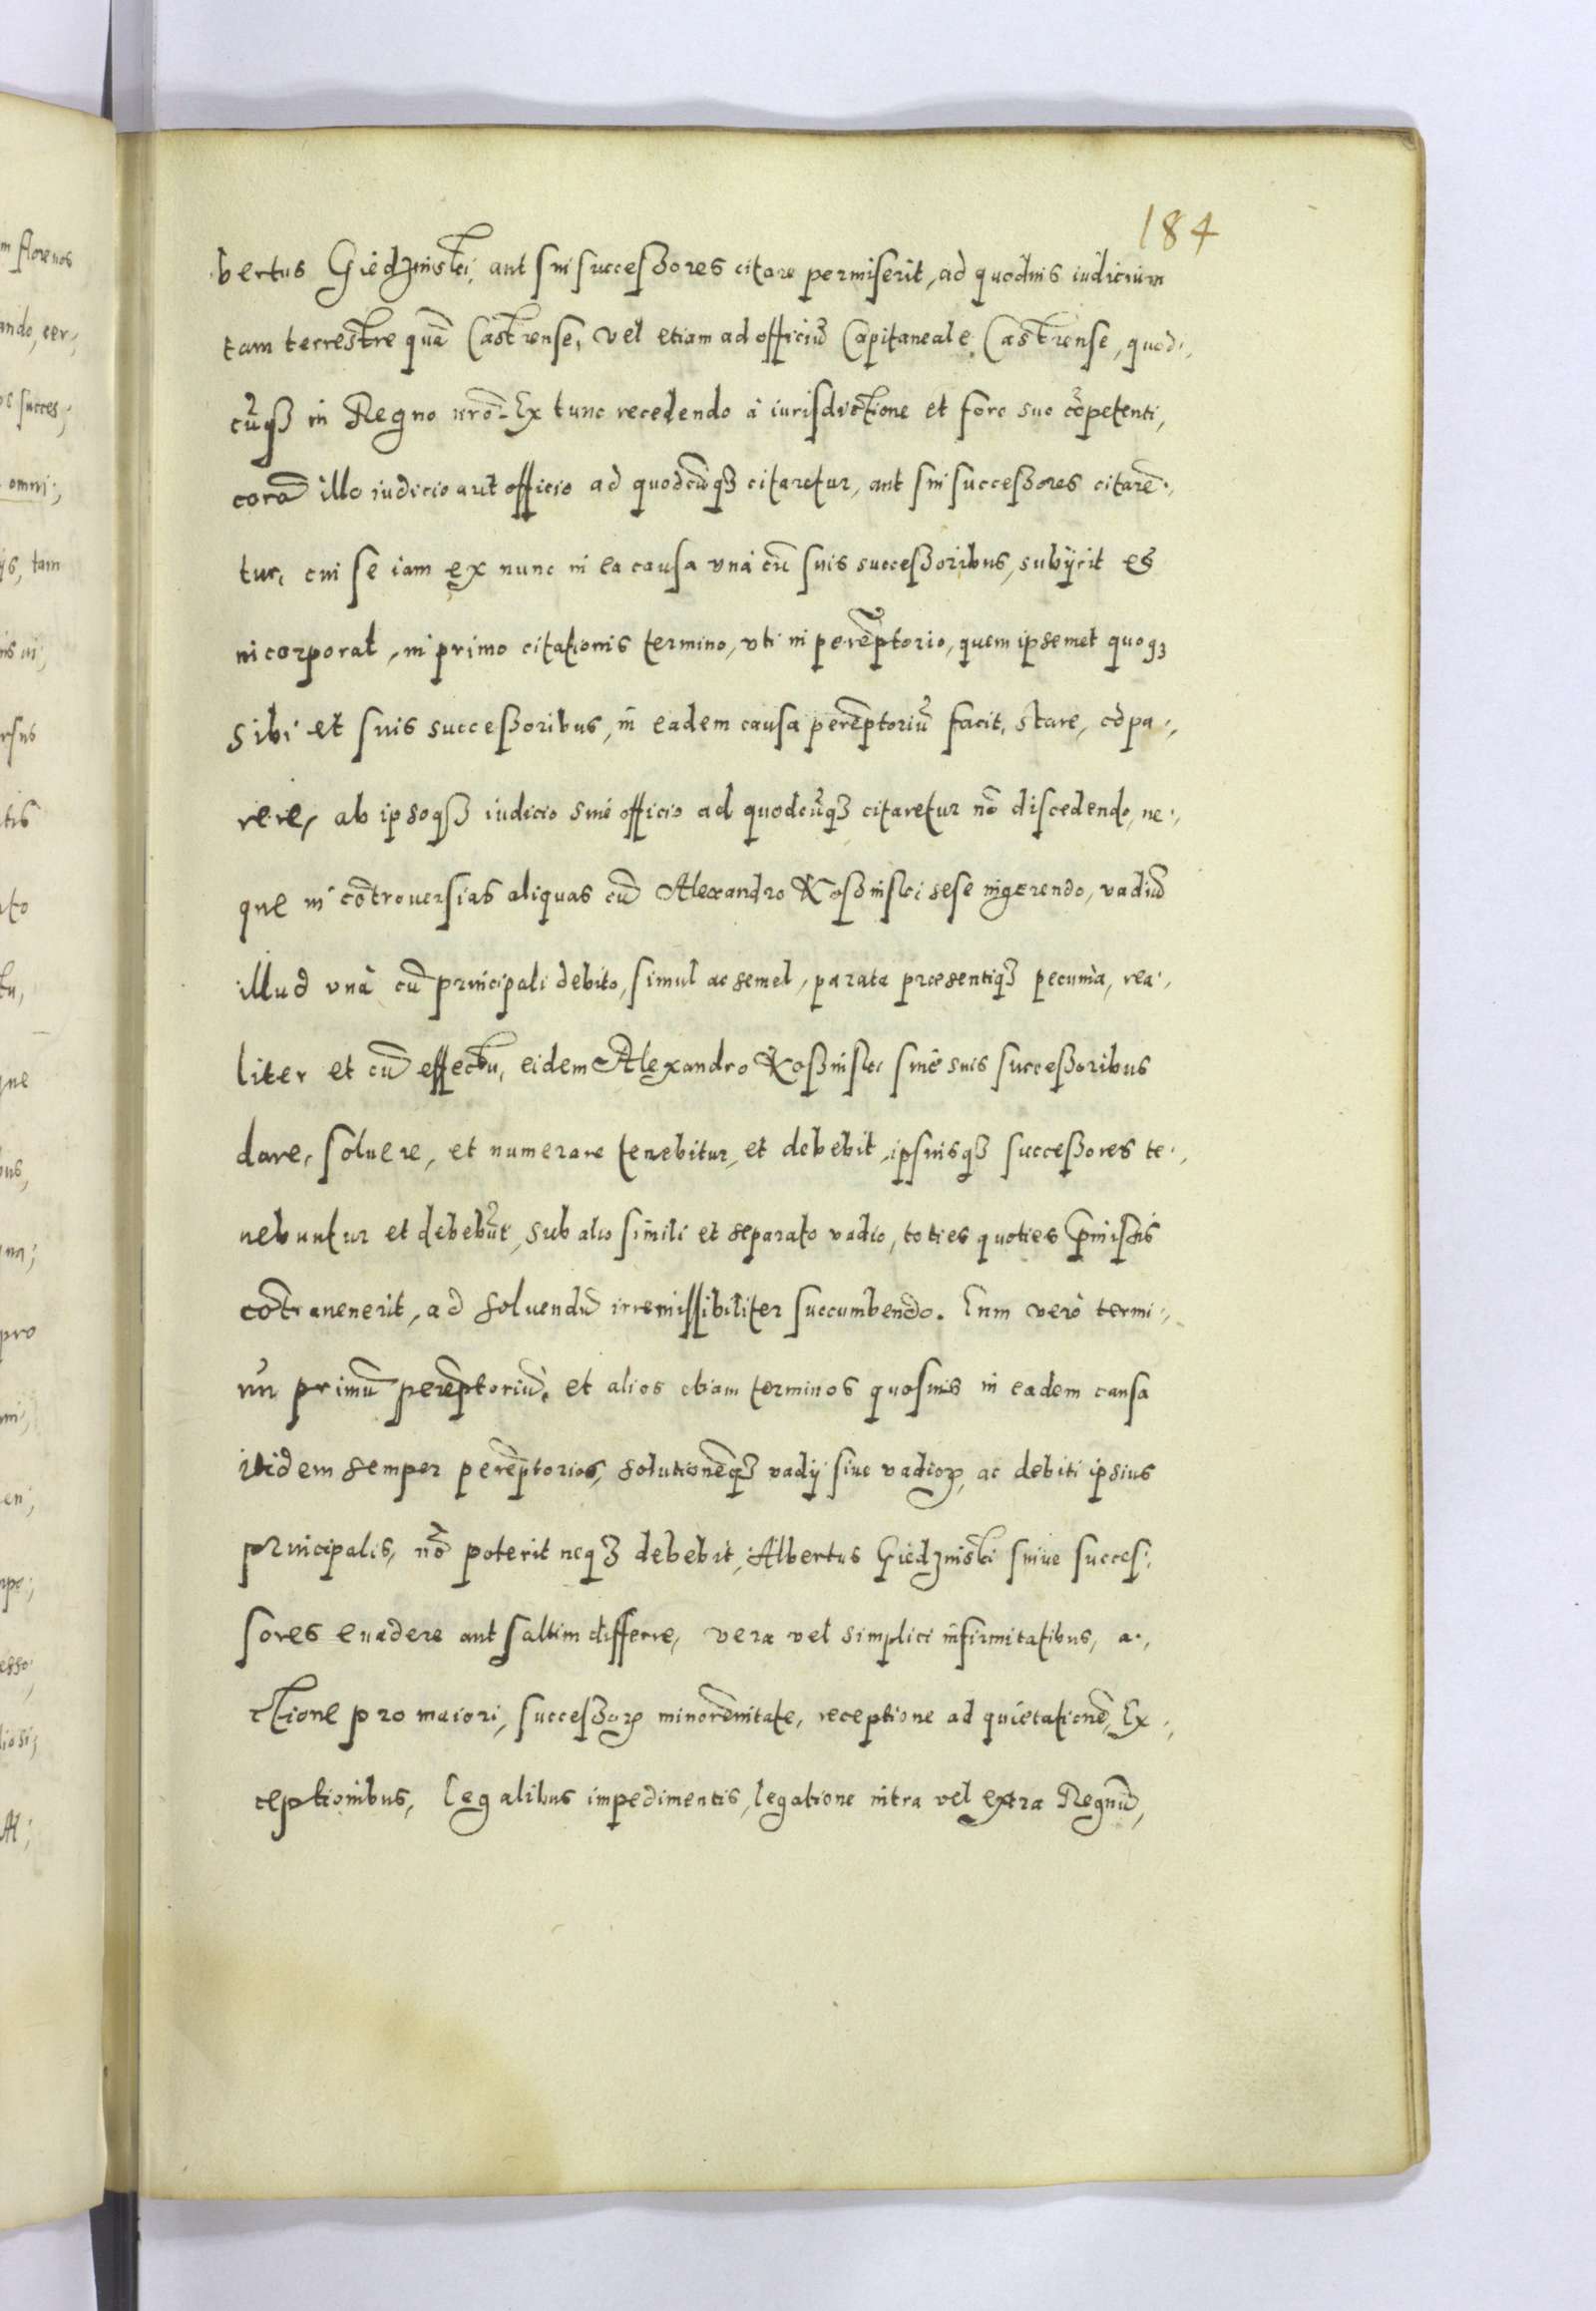 184
bertus Giedzinski, aut sui successores citare permiserit, ad quoduis iudicium
tam terrestre quā Castrense, vel etiam ad officiū Capitaneale Castrense, quod-
cūq3 in Regno nrō. Ex tunc recedendo à iurisdictione et foro suo cōpetenti,
corā illo iudicio aut officio ad quodcūq3 citaretur, aut sui successores citarē-
tur, cui se iam ex nunc in ea causa vnà cū suis successoribus, subijcit et
incorporat, in primo citationis termino, vti in perēptorio, quem ipsemet quoq3
sibi et suis successoribus, in eadem causa perēptoriū facit, stare, cōpa-
rere, ab ipsoq3 iudicio siue officio ad quodcūq3 citaretur nō discedendo, ne-
que in cōtrouersias aliquas cū Alexandro Kossinski sese ingerendo, vadiū
illud vnà cū principali debito, simul ac semel, parata praesentiq3 pecunia, rea-
liter et cū effectu, eidem Alexandro Kossinski siue suis successoribus
dare, soluere, et numerare tenebitur, et debebit, ipsiusq3 successores te-
nebuntur et debebūt, sub alio simili et separato vadio, toties quoties p̄missis
cōtrauenerit, ad soluendū irremissibiliter succumbendo. Eum verò termi-
nū primū perēptoriū, et alios etiam terminos quosuis in eadem causa
itidem semper perēptorios, solutionēq3 vadij siue vadioꝝ, ac debiti ipsius
principalis, nō poterit neq3 debebit, Albertus Giedzinski suiue succes-
sores euadere aut saltim differre, vera vel simplici infirmitatibus, a-
ctione pro maiori, successoꝝ minorēnitate, receptione ad quietationē, Ex-
ceptionibus, legalibus impedimentis, legatione intra vel extra Regnū,